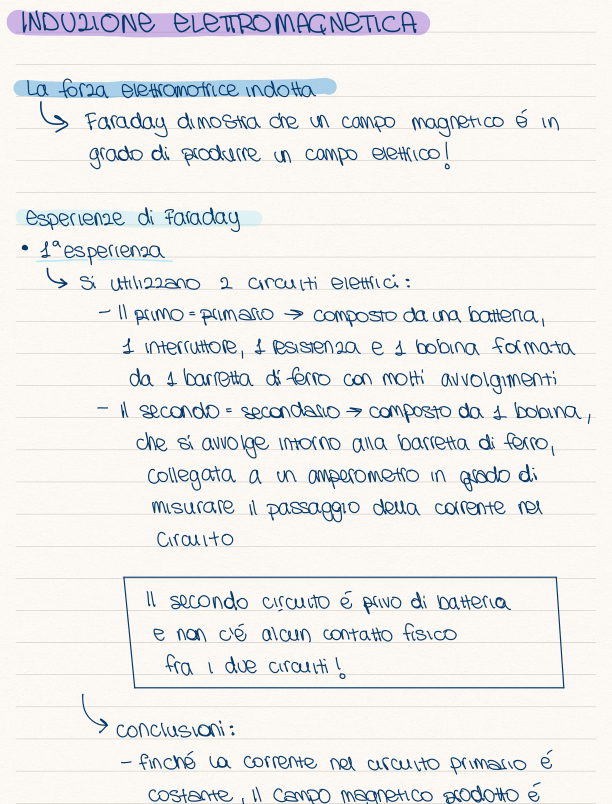 INDUZIONE ELETTROMAGNETICA
La forza elettromotrice indotta
↳ Faraday dimostra che un campo magnetico é in
grado di produrre un campo elettrico!
esperienze di Faraday
• 1ª esperienza
↳ Si utilizzano 2 circuiti elettrici:
- Il primo = primario → composto da una batteria,
1 interruttore, 1 resistenza e 1 bobina formata
da 1 barretta di ferro con molti avvolgimenti
- Il secondo = secondario → composto da 1 bobina,
che si avvolge intorno alla barretta di ferro,
collegata a un amperometro in grado di
misurare il passaggio della corrente nel
circuito
Il secondo circuito é privo di batteria
e non c'é alcun contatto fisico
fra i due circuiti!
↳ conclusioni:
- finché la corrente nel circuito primario é
costante, il campo magnetico prodotto é